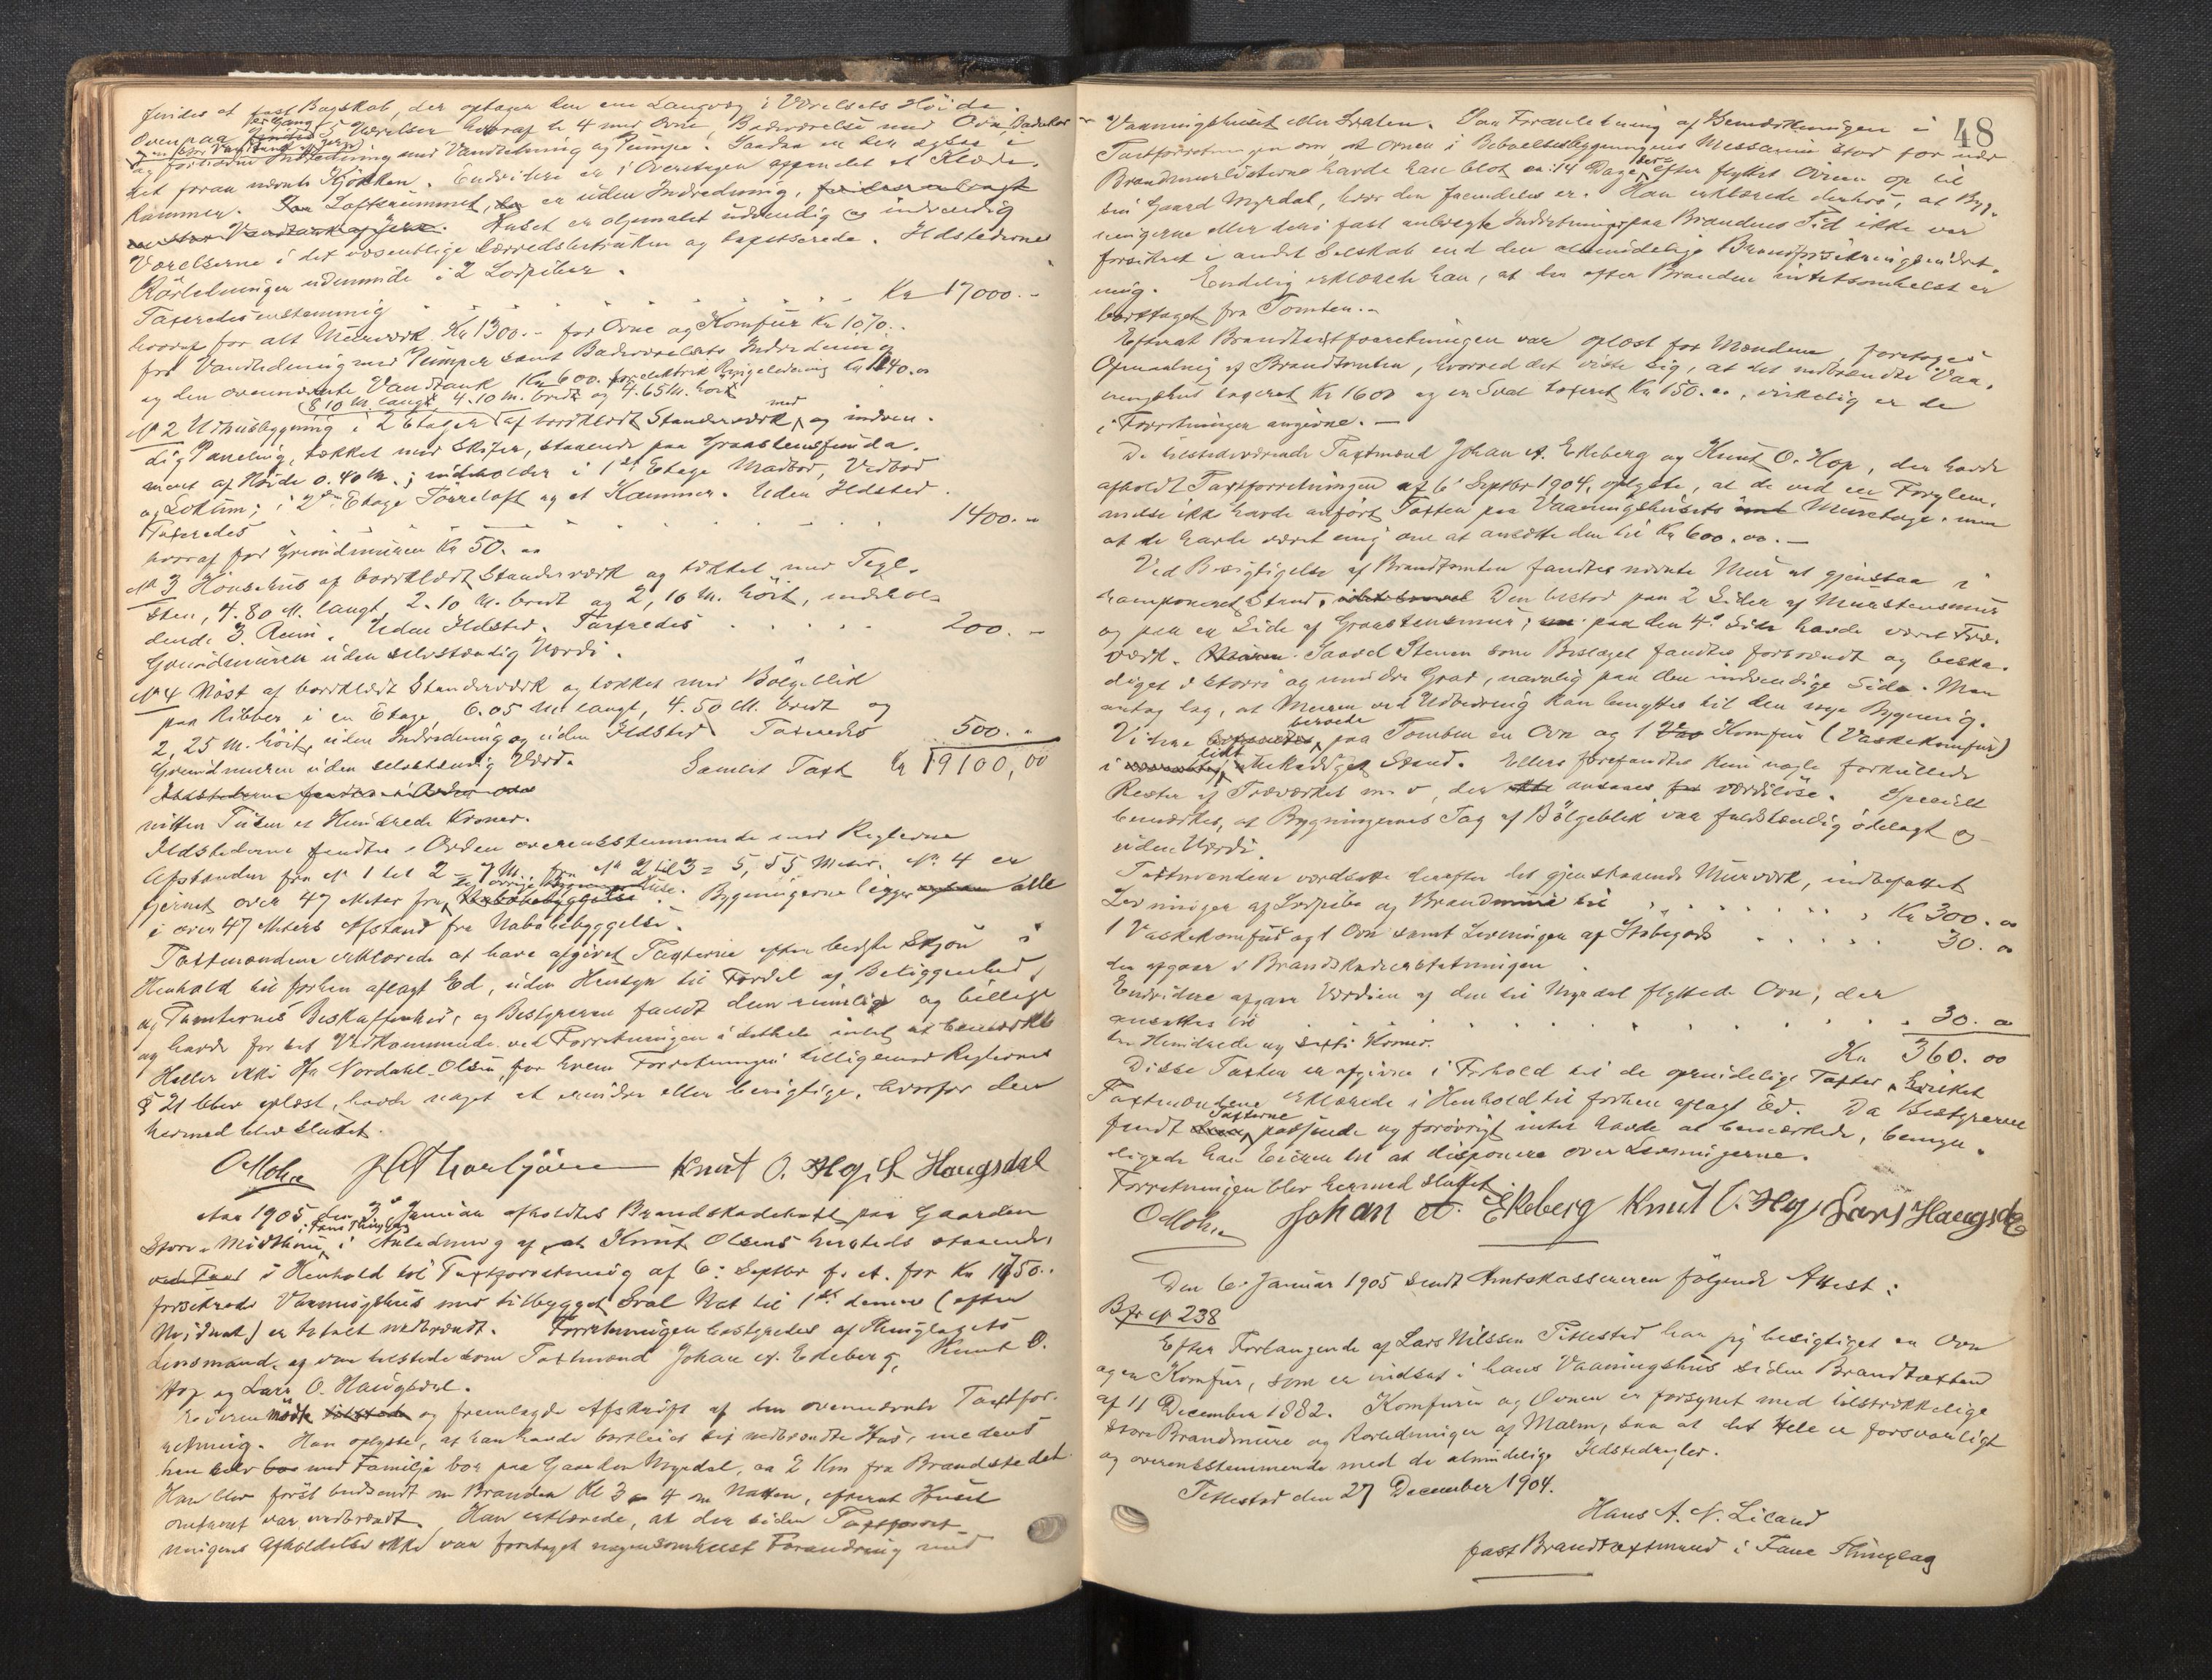 findes et fast Bagskab, der optager den ene Langvæg i Værelsets Höide.
Ovenpaa findes 5 Værelser hvoraf de 4 med Ovne, Badeværelse med Ovn, Badekar
per Gang
og en stor Vandtank af Jern
og forøvrigt Indredning med Vandledning og Pumpe. Saadan er der ogsaa i
det foran nævnte Kjökken. Endvidere er i Overetagen oppendet et Klæde-
kammer. Loftsrummet, er uden Indredning,
en stor Vandtank af Jern. Huset er oljemalet udvendig og indvendig
Værelserne i det væsentlige lærredsbetrukne og tapetserede. Ildstederne
Rörledninger udmunde i 2 Lodpiber.
Taxeredes enstemmig Kr 17000.-
hvoraf for alt Murværk Kr 1300.- for Ovne og Komfur Kr 1070.-
for Vandledning med Pumper samt Badeværelsets Indredning
og den ovennævnte Vandtank Kr 600. for elektrisk Ringeledning Kr 140.00
8.10 M. langt, 4.10 M. bredt og 4.65 M. höit
No 2 Udhusbygning i 2 Etager af bordklædt Standerværk med og indven-
dig Paneling, tækket med Skifer, staaende paa Graastensfunda-
ment af Höide 0.40 M.; indeholder i 1ste Etage Madbod, Vedbod
og Lokum; i 2den Etage Törreloft og et Kammer. Uden Ildsted.
Taxeredes 1400.-
hvoraf for Grundmuren Kr 50.00
No 3 Hönsehus af bordklædt Standerværk og tækket med Tegl-
sten, 4.80 M. langt, 2.10 M. bredt og 2,10 M. höit, indehol-
dende 3 Rum. Uden Ildsted. Taxeredes 200.-
Grundmuren uden selvstændig Værdi.
No 4 Nöst af bordklædt Standerværk og tækket med Bölgeblik
paa Ribber i en Etage, 6.05 M. langt, 4.50 M. bredt og
2,25 M. höit, uden Indredning og uden Ildsted Taxeredes 500.-
Grundmuren uden selvstændig Værd.
Samlet Taxt Kr 19100,00
Ildstederne fandtes i Orden ove
nitten Tusen et Hundrede Kroner.
Ildstederne fandtes i Orden overensstemmende med Reglerne
Afstanden fra No 1 til 2 = 7 M., fra No 2 til 3 = 5,55 Meter. No 4 er
fjernet over 47 Meter fra de övrige Huse. Bygningerne ligger alle
i over 47 Meters Afstand fra Nabobebyggelse.
Taxtmændene erklærede at have afgivet Taxterne efter bedste Skjön i
Henhold til forhen aflagt Ed, uden Hensyn til Fordel af Beliggenhed
og Tomternes Beskaffenhed, og Bestyreren fandt dem rimelige og billige
og havde for sit Vedkommende ved Forretningen i det hele intet at bemærke
Heller ikke Hr Nordahl-Olsen, for hvem Forretningen tilligemed Reglernes
§ 21 blev oplæst, havde noget at erindre eller berigtige, hvorfor den
hermed blev sluttet.
OMohn Knut O. Hop, L Haugsdal
Aar 1905 den 3die Januar afholdtes Brandskadetaxt paa Gaarden
i Fane Thinglag
Store Midttun i Anledning af at Knut Olsens hersteds staaende,
i Henhold til Taxtforretning af 6: Septbr f. A. for Kr 1750.-
forsikrede Vaaningshus med tilbygget Sval Nat til 1ste dennes (efter
Midnat) er totalt nedbrændt. Forretningen bestyredes af Thinglagets
Lensmand, og var tilstede som Taxtmænd Johan A. Ekeberg, Knut O.
Hop og Lars O. Haugsdal.
Eieren mödte tilstede og fremlagde Afskrift af den ovennævnte Taxtfor-
retning. Han oplyste, at han havde bortleiet det nedbrændte Hus, medens
han selv bor med Familje bor paa Gaarden Myrdal, ca 2 Km fra Brandstedet.
Han blev först budsendt om Branden Kl 3 a 4 om Natten, efterat Huset
omtrent var nedbrændt. Han erklærede, at der siden Taxtforret-
ningens Afholdelse ikke var foretaget nogensomhelst Forandring med
48
Vaaningshuset eller Svalen. Paa Foranledning af Bemærkningen i
Taxtforretningen om, at Ovnen i Beboelsesbygningens Messanin stod for nær
Brandmurlisterne havde han blot ca: 14 Dage derefter flyttet Ovnen op til
sin Gaard Myrdal, hvor den fremdeles er. Han erklærede derhos, at Byg-
ningerne eller deri fast anbragte Indretninger paa Brandens Tid ikke var
forsikret i andet Selskab end den almindelige Brandforsikringsindret-
ning. Endelig erklærede han, at der efter Branden intetsomhelst er
borttaget fra Tomten.-
Efterat Brandtaxtforretningen var oplæst for Mændene, foretoges
Opmaaling af Brandtomten, hvorved det viste sig, at det nedbrændte Vaa-
ningshus taxeret Kr 1600 og en Sval taxeret Kr 150.00, virkelig er de
i Forretningen angivne.-
De tilstedeværende Taxtmænd Johan A. Ekeberg og Knut O. Hop, der havde
afholdt Taxtforretningen af 6' Septbr 1904, oplyste, at de ved en Forglem-
melse ikke havde anfört Taxten paa Vaaningshusets Muretage, men
at de havde været enig om at ansætte den til Kr 600.00.-
Ved Besigtigelse af Brandtomten fandtes nævnte Mur at gjenstaa i
ramponeret Stand. Den bestod paa 2 Sider af Murstensmur
og paa en Side af Graastensmur; paa den 4de Side havde været Træ-
værk. Saavel Stenen som Beslaget fandtes forbrændt og beska-
diget i större og mindre Grad, navnlig paa den indvendige Side. Man
antog dog, at Muren ved Udbedring kan benyttes til den nye Bygning.
Videre beroede paa Tomten en Ovn og 1 Komfur (Vaskekomfur)
i lidt beskadiget Stand. Ellers forefandtes kun nogle forkullede
Rester af Træværket m. v, der ansaaes værdilöse. Specielt
bemærkes, at Bygningernes Tag af Bölgeblik var fuldstændig ödelagt og
uden Værdi.
Taxtmændene værdsatte derefter det gjenstaaende Murværk, indbefattet
Levninger af Lodpibe og Brandmure til Kr 300.00
1 Vaskekomfur og 1 Ovn samt Levninger af Stöbegods 30.00
der afgaar i Brandskadeerstatningen
Endvidere afgaar Værdien af den til Myrdal flyttede Ovn, der
ansættes til 30.00
tre Hundrede og sexti Kroner. Kr 360.00
Disse Taxter er afgivne i Forhold til de oprindelige Taxter, hvilket
Taxtmændene erklærede i Henhold til forhen aflagt Ed. Da Bestyreren
fandt Taxterne passende og forövrigt intet havde at bemærke, bemyn-
digede han Eieren til at disponere over Levningerne.
Forretningen blev hermed sluttet.
OMohn Johan A. Ekeberg Knut O. Hop Lars Haugsdal
Den 6. Januar 1905 sendt Amtskassereren fölgende Attest:
Bfr No 238
Efter Forlangende af Lars Nilssen Titlestad har jeg besigtiget en Ovn
og en Komfur, som er indsat i hans Vaaningshus siden Brandtaxten
af 11 December 1882. Komfuren og Ovnen er forsynet med tilstrækkelige
store Brandmure og Rörledninger af Malm, saa at det Hele er forsvarligt
og overensstemmende med de almindelige Ildstedregler.
Titlestad den 27 December 1904.
Hans A. N. Licand
fast Brandtaxtmand i Fane Thinglag